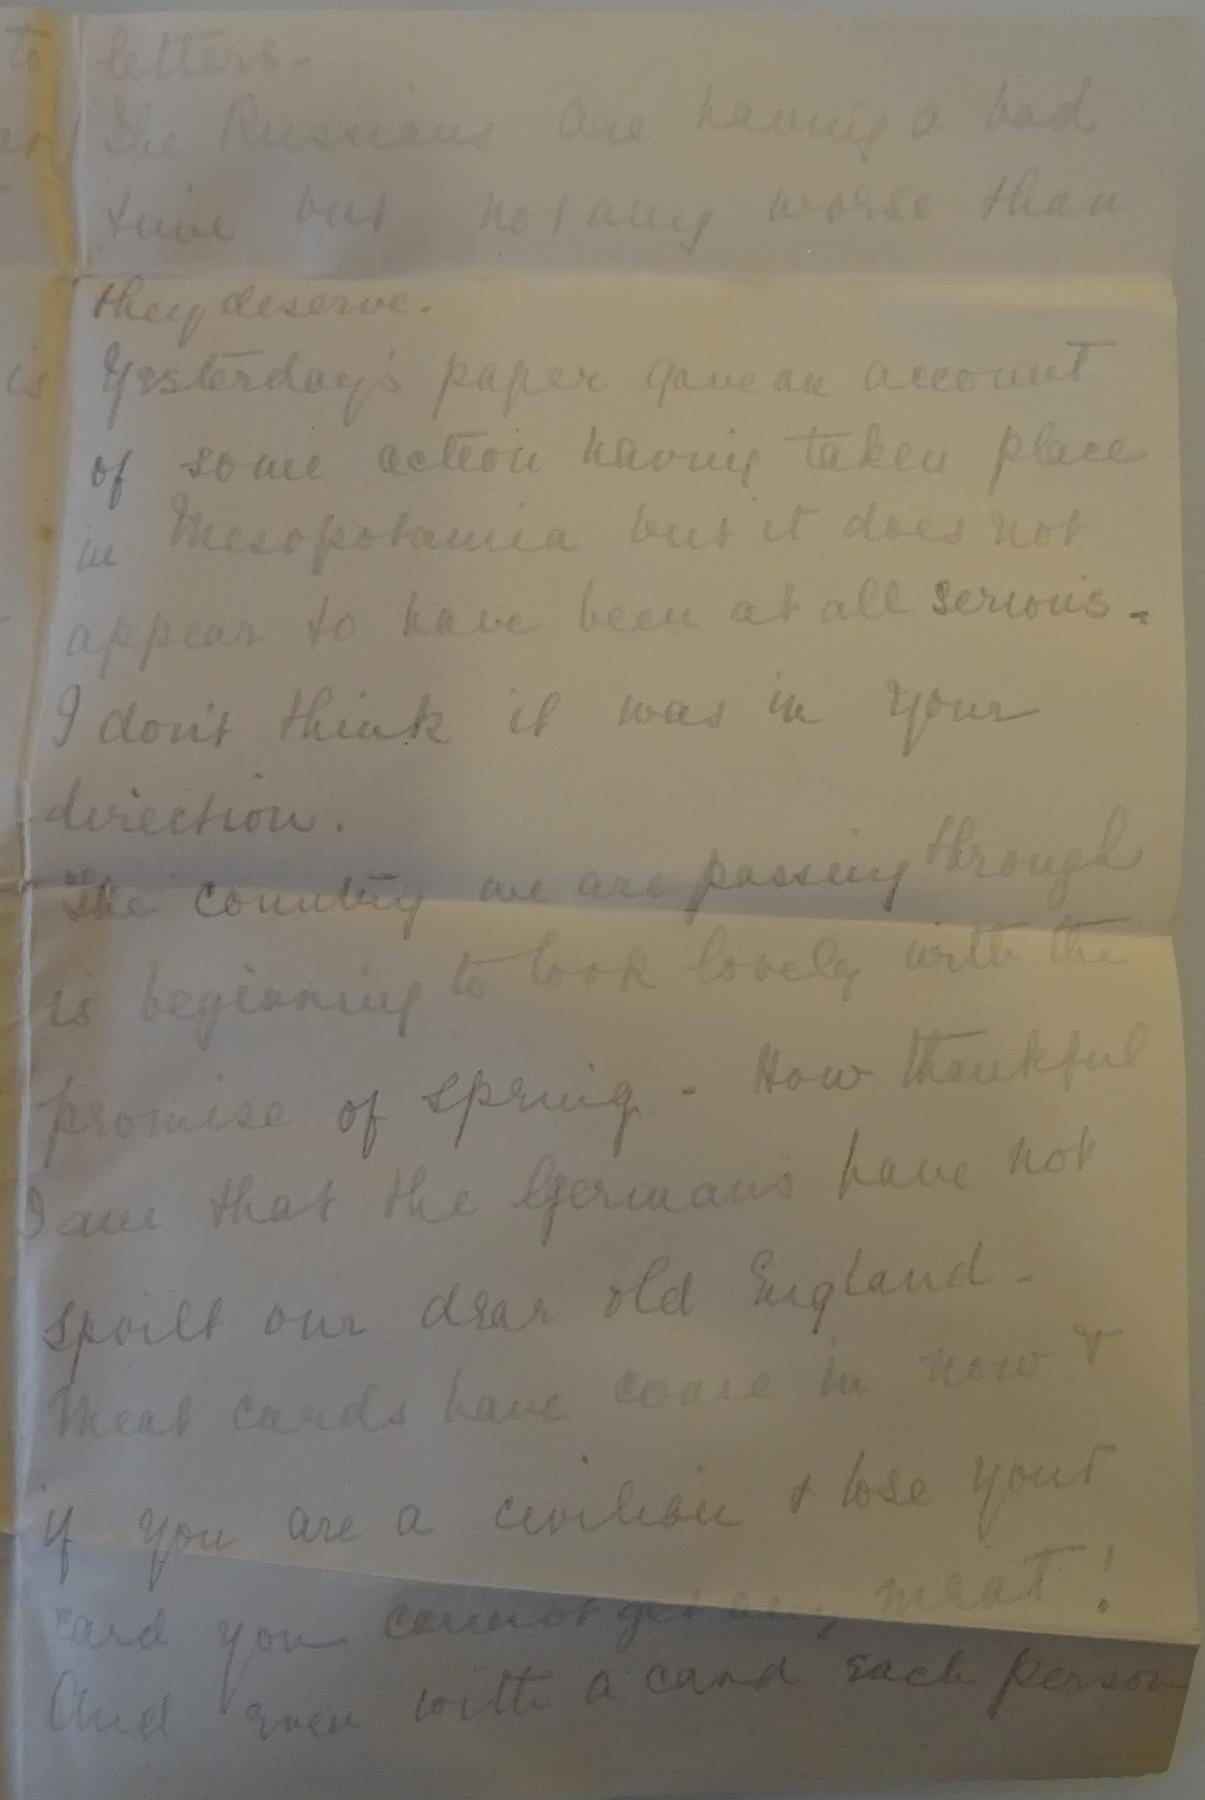 to letters.-
The Russians are having a bad
time but not any worse than
they deserve.
is Yesterday's paper gave an account
of some action having taken place
in Mesopotamia but it does not
appear to have been at all serious -
I don't think it was in your
direction.
The country we are passing through
is beginning to look lovely with the
promise of spring - How thankful
I am that the Germans have not
spoilt our dear old England -
Meat cards have come in now &
if you are a civilian & lose your
card you cannot get any meat!
And even with a card each person